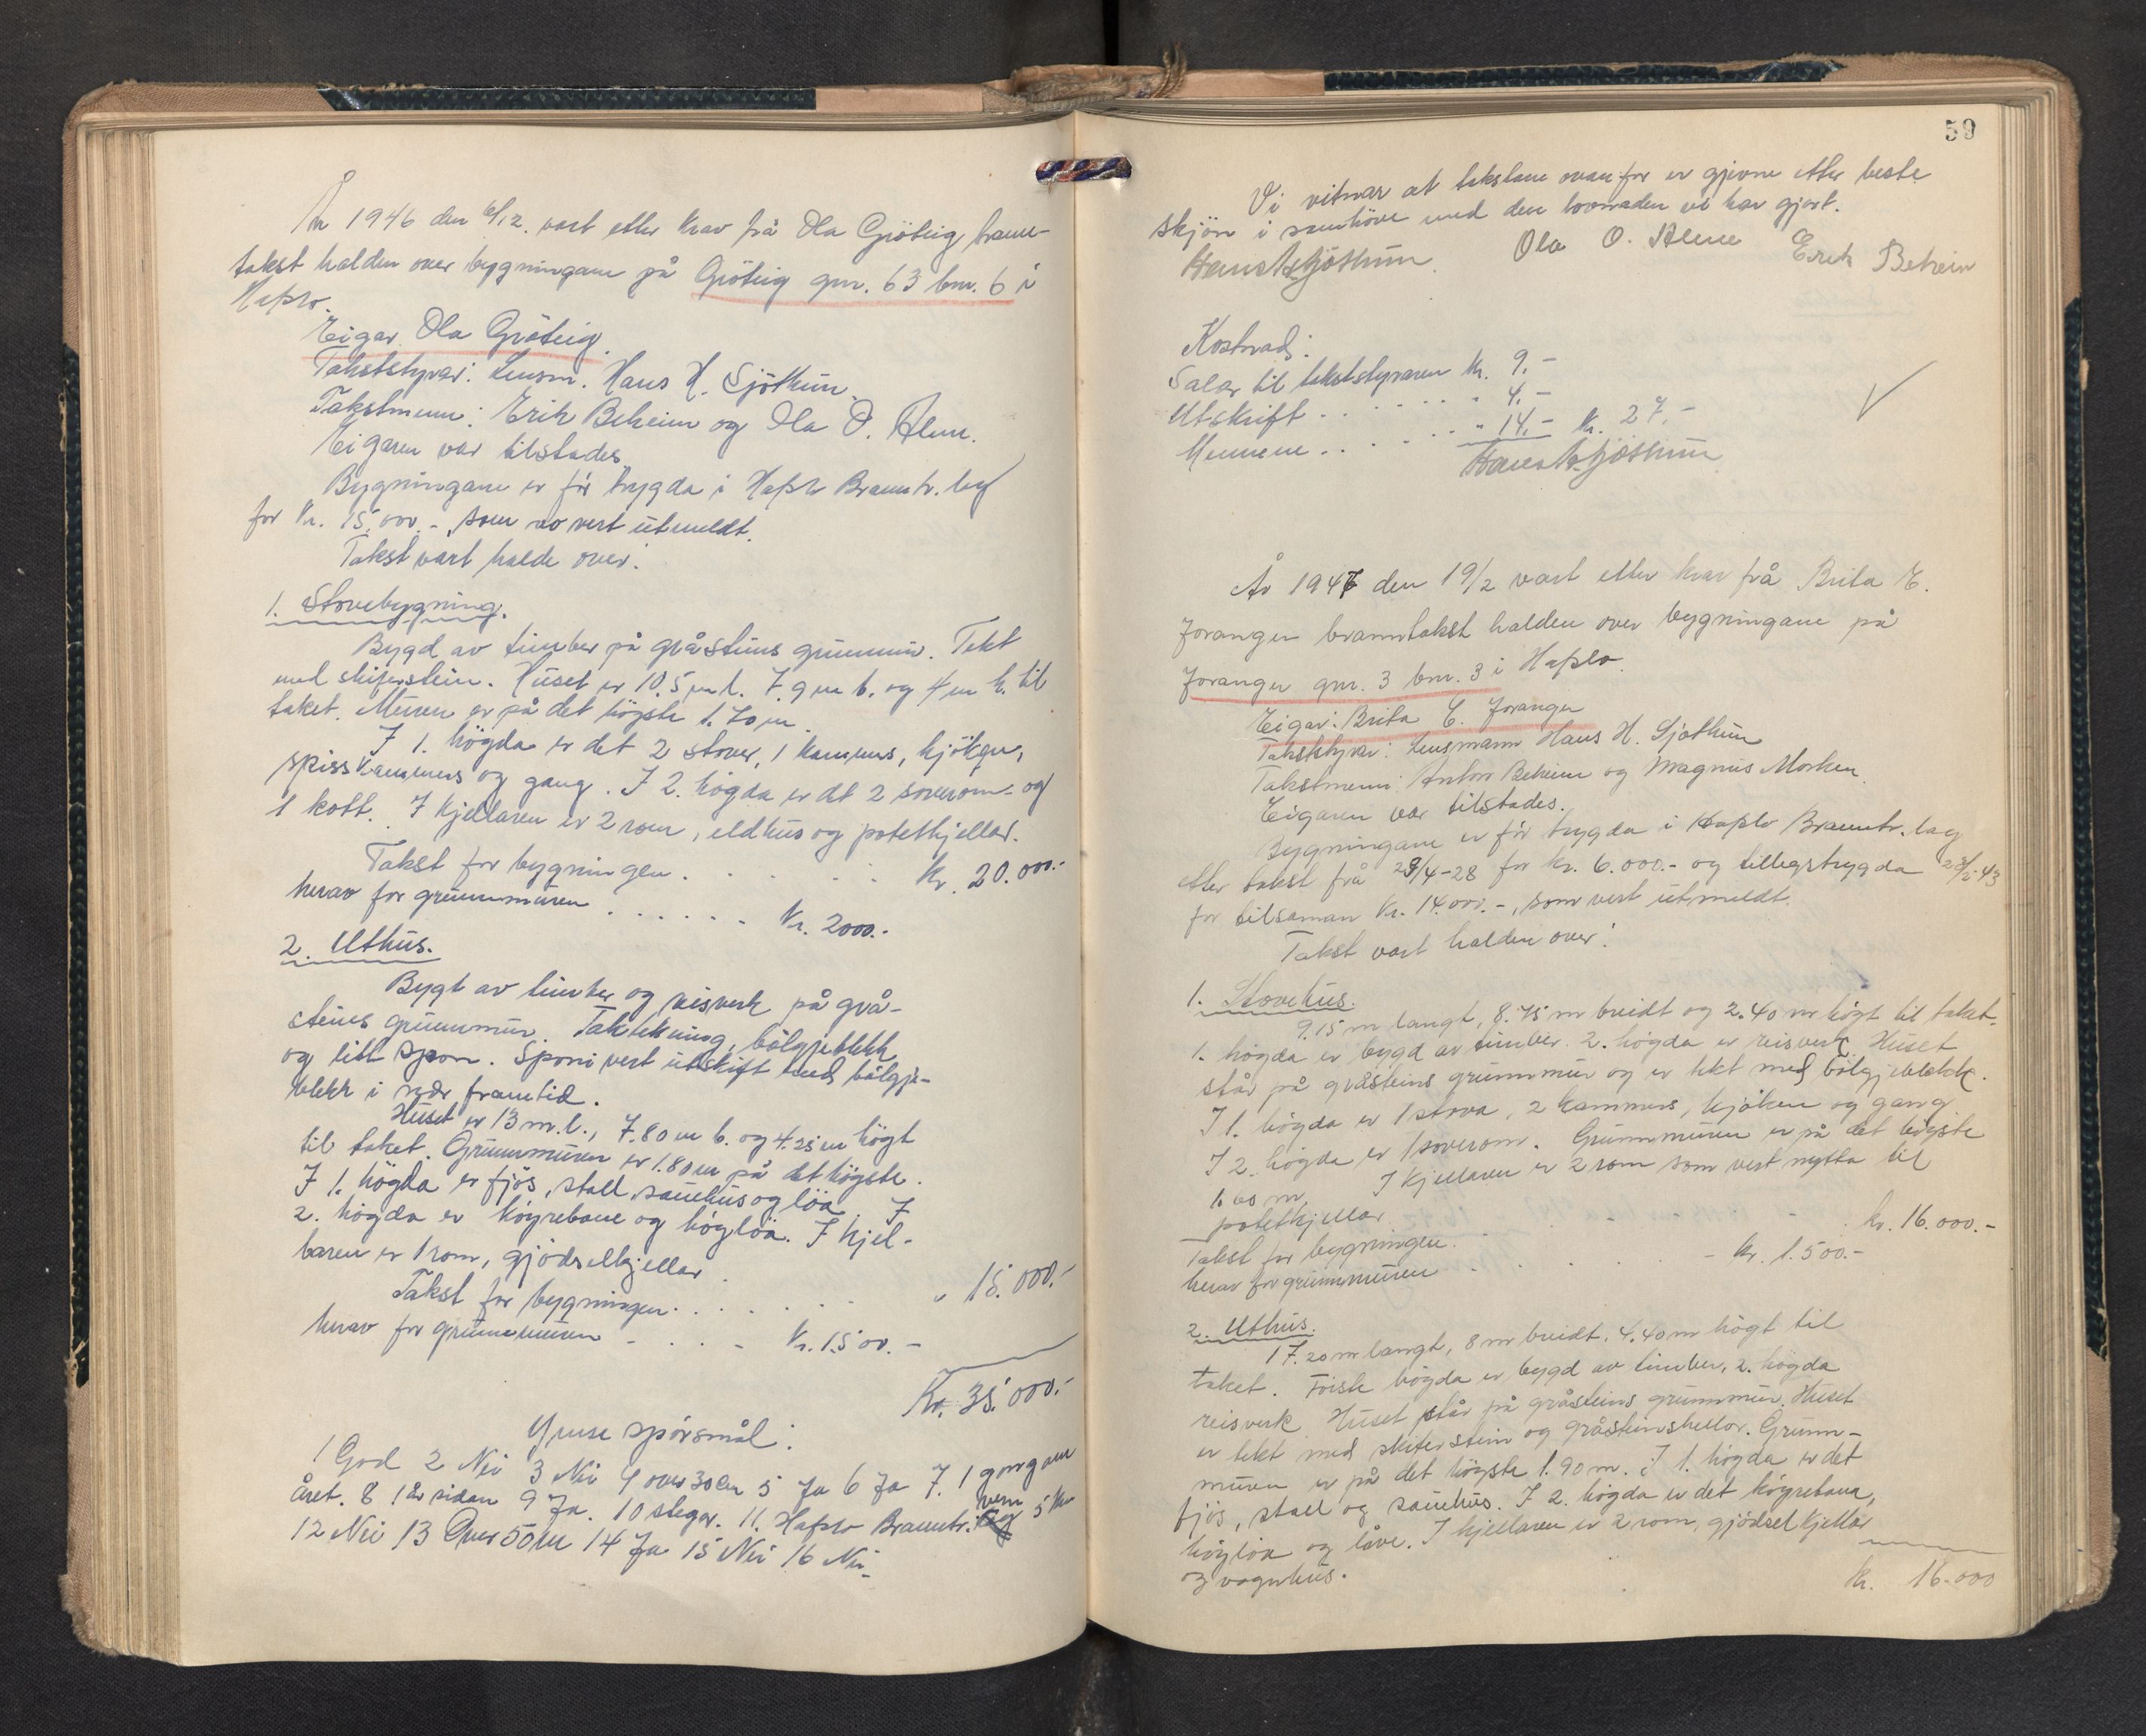 År 1946 den 6/12. vart etter krav frå Ola Gröteig brann-
takst halden over bygningane på Gröteig gnr. 63 bnr. 6 i
Hafslo.
Eigar Ola Gröteig.
Takststyrar: Lensm. Hans H. Sjöthun.
Takstmenn: Erik Beheim og Ola O. Alme.
Eigaren var tilstades.
Bygningane er för trygda i Hafslo Branntr. lag
for kr. 15.000.-, som no vert utmeldt.
Takst vart halde over:
1. Stovebygning.
Bygd av timber på gråsteins grunnmur. Tekt
med skiferstein. Huset er 10.5 m l. 7.9 m b. og 4 m h. til
taket. Muren er på det högste 1.70 m.
I 1. högda er det 2 stover, 1 kammers, kjöken,
spisskammers og gang. I 2. högda er det 2 soverom og
1 kott. I kjellaren er 2 rom, eldhus og potetkjellar.
Takst for bygningen . . . . . . kr. 20.000.-
herav for grunnmuren . . . . . . kr. 2000.-
2. Uthus.
Bygt av timber og reisverk på grå-
steins grunnmur. Taktekning, bölgjeblekk
og litt spon. Sponi vert utskift med bölgje-
blekk i nær framtid.
Huset er 13 m. l., 7.80 m b. og 4.25 m högt
til taket. Grunnmuren er 1.80 m på det högste.
I 1. högda er fjös, stall, sauehus og löa. I
2. högda er köyrebane og höyløa. I kjel-
laren er 1 rom, gjödselkjellar.
Takst for bygningen . . . . . . . " 15.000.-
herav for grunnmuren - . . - kr. 1500.-
Kr. 35.000.-
Ymse spörsmål:
1 God 2 Nei 3 Nei 4 over 30 cm 5 Ja 6 Ja 7. 1 gong om
året. 8 1 år sidan 9 Ja. 10 stegar. 11. Hafslo Branntr.
12 Nei 13 Over 50 m 14 Ja 15 Nei 16 Nei.
59
Vi vitnar at takstane ovanfor er gjevne etter beste
skjön i samhöve med den lovnaden vi har gjort.
Hans H Sjöthun. Ola O. Alme Erik Beheim
Kostnad:
Salær til takststyraren kr. 9.-
Utskrift . . . . . . " 4.-
Mennene . . . . . " 14.- Kr. 27.-
Hans H Sjöthun
År 1947 den 19/2 vart etter krav frå Brita E.
Joranger branntakst halden over bygningane på
Joranger gnr. 3 bnr. 3 i Hafslo.
Eigar: Brita E. Joranger
Takststyrar: Lensmann Hans H. Sjöthun
Takstmenn: Anton Beheim og Magnus Morken.
Eigaren var tilstades.
Bygningane er för trygda i Hafslo Branntr. lag
etter takst frå 28/4-28 for kr. 6.000.- og tilleggstrygda 23/2-43
for tilsaman kr. 14.000.-, som vert utmeldt.
Takst vart halden over:
1. Stovehus.
9.15 m langt, 8.75 m breidt og 2.40 m högt til taket.
1. högda er bygd av timber. 2. högda er reisverk. Huset
står på gråsteins grunnmur og er tekt med bölgjeblekk.
I 1. högda er 1 stova, 2 kammers, kjöken og gang
I 2. högda er 1 soverom. Grunnmuren er på det högste
1.60 m. I kjellaren er 2 rom som vert nytta til
potetkjellar.
Takst for bygningen . . . . kr. 16.000.-
herav for grunnmuren . . . . - kr. 1.500.-
2. Uthus.
17.20 m langt, 8 m breidt, 4.40 m högt til
taket. Förste högda er bygd av timber, 2. högda
reisverk. Huset står på gråsteins grunnmur. Huset
er tekt med skiferstein og gråsteinshellor. Grunn-
muren er på det högste 1.90 m. I 1. högda er det
fjös, stall og sauehus. I 2. högda er det köyrebana,
höyløa og låve. I kjellaren er 2 rom, gjödselkjellar
og vognhus.
kr. 16.000